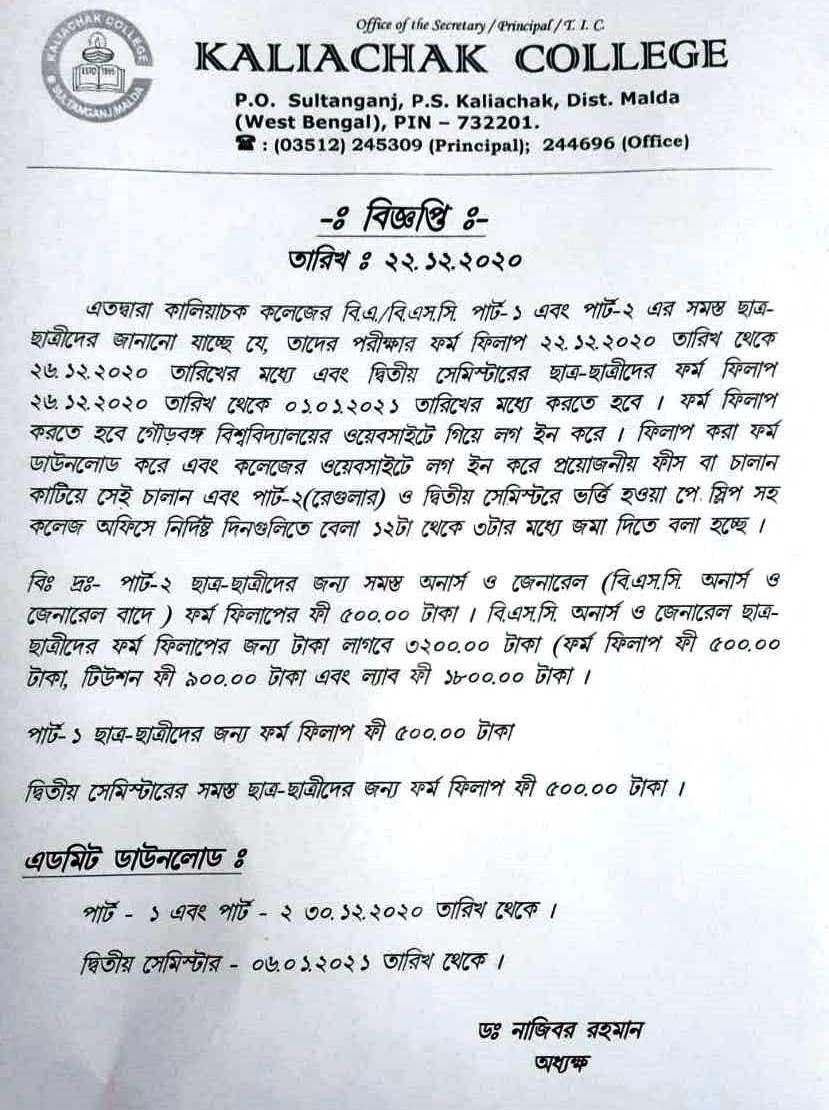 KALIACHAK COLLEGE
ESTD 1995
SULTANGANJ MALDA
Office of the Secretary / Principal / T. I. C.
KALIACHAK COLLEGE
P.O. Sultanganj, P.S. Kaliachak, Dist. Malda
(West Bengal), PIN – 732201.
☎ : (03512) 245309 (Principal); 244696 (Office)
-ঃ বিজ্ঞপ্তি ঃ-
তারিখ ঃ ২২.১২.২০২০
এতদ্বারা কালিয়াচক কলেজের বি.এ/বি.এস.সি. পার্ট-১ এবং পার্ট-২ এর সমস্ত ছাত্র-
ছাত্রীদের জানানো যাচ্ছে যে, তাদের পরীক্ষার ফর্ম ফিলাপ ২২.১২.২০২০ তারিখ থেকে
২৬.১২.২০২০ তারিখের মধ্যে এবং দ্বিতীয় সেমিস্টারের ছাত্র-ছাত্রীদের ফর্ম ফিলাপ
২৬.১২.২০২০ তারিখ থেকে ০১.০১.২০২১ তারিখের মধ্যে করতে হবে । ফর্ম ফিলাপ
করতে হবে গৌড়বঙ্গ বিশ্ববিদ্যালয়ের ওয়েবসাইটে গিয়ে লগ ইন করে । ফিলাপ করা ফর্ম
ডাউনলোড করে এবং কলেজের ওয়েবসাইটে লগ ইন করে প্রয়োজনীয় ফীস বা চালান
কাটিয়ে সেই চালান এবং পার্ট-২(রেগুলার) ও দ্বিতীয় সেমিস্টরে ভর্ত্তি হওয়া পে স্লিপ সহ
কলেজ অফিসে নির্দিষ্ট দিনগুলিতে বেলা ১২টা থেকে ৩টার মধ্যে জমা দিতে বলা হচ্ছে ।
বিঃ দ্রঃ- পার্ট-২ ছাত্র-ছাত্রীদের জন্য সমস্ত অনার্স ও জেনারেল (বি.এস.সি. অনার্স ও
জেনারেল বাদে ) ফর্ম ফিলাপের ফী ৫০০.০০ টাকা । বি.এস.সি. অনার্স ও জেনারেল ছাত্র-
ছাত্রীদের ফর্ম ফিলাপের জন্য টাকা লাগবে ৩২০০.০০ টাকা (ফর্ম ফিলাপ ফী ৫০০.০০
টাকা, টিউশন ফী ৯০০.০০ টাকা এবং ল্যাব ফী ১৮০০.০০ টাকা ।
পার্ট- ১ ছাত্র-ছাত্রীদের জন্য ফর্ম ফিলাপ ফী ৫০০.০০ টাকা
দ্বিতীয় সেমিস্টারের সমস্ত ছাত্র-ছাত্রীদের জন্য ফর্ম ফিলাপ ফী ৫০০.০০ টাকা ।
এডমিট ডাউনলোড ঃ
পার্ট - ১ এবং পার্ট - ২ ৩০.১২.২০২০ তারিখ থেকে ।
দ্বিতীয় সেমিস্টার - ০৬.০১.২০২১ তারিখ থেকে ।
ডঃ নাজিবর রহমান
অধ্যক্ষ